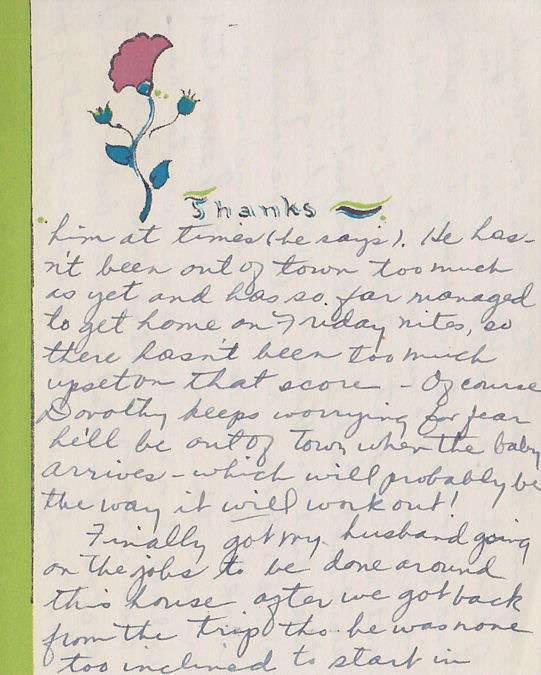 Thanks
him at times (he says). He has-
n't been out of town too much
as yet and has so far managed
to get home on Friday nites, so
there hasn't been too much
upset on that score - Of course
Dorothy keeps worrying for fear
he'll be out of town when the baby
arrives - which will probably be
the way it will work out!
Finally got my husband going
on the jobs to be done around
this house after we got back
from the trip tho he was none
too inclined to start in